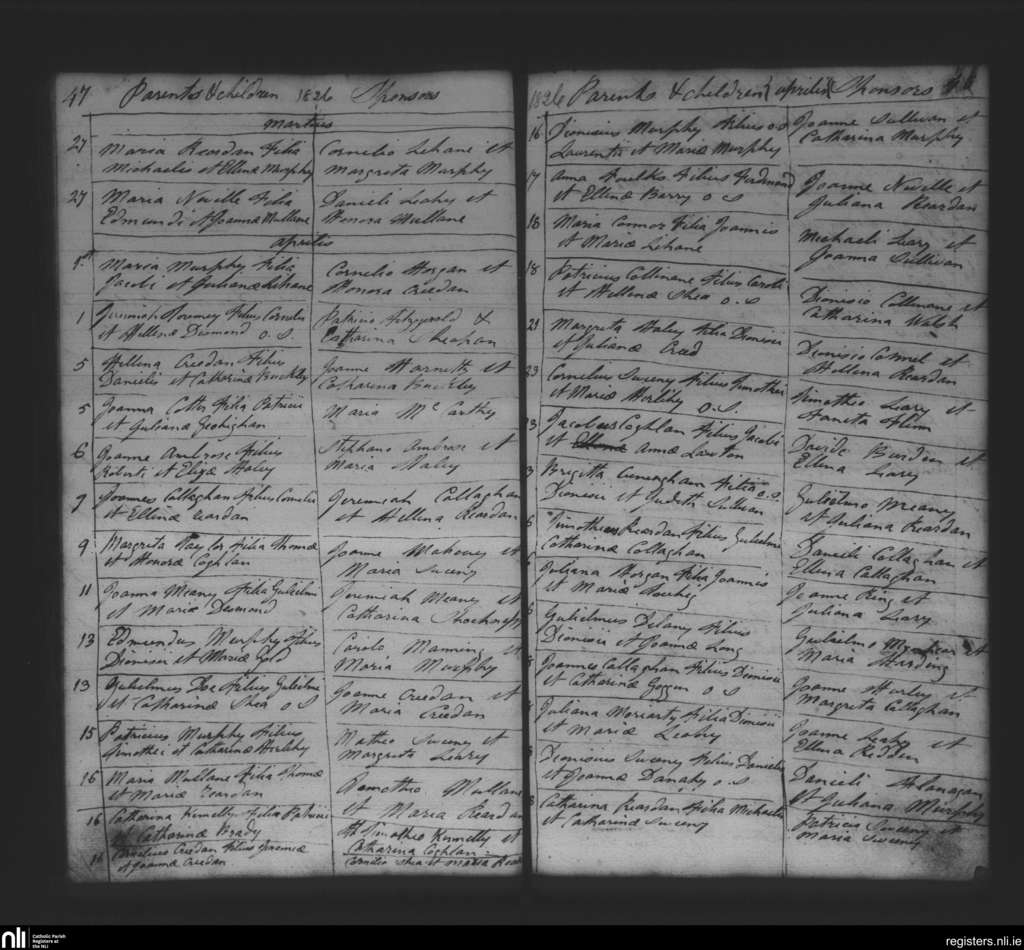 47 Parents & children 1826 Sponsors
Martius
27 Maria Reardan Filia Cornelio Lehane et
Michaelis et Ellenæ Murphy Margreta Murphy
27 Maria Neville Filia Danieli Leahy et
Edmundi et Joannæ Mullane Honora Mullane
aprilis
1st Maria Murphy Filia Cornelio Horgan et
Jacobi et Julianæ Lehane Honora Creedan
1 Jeremiah Filius Cornelii Patricio Fitzgerold &
et Hellenæ Desmond o.s. Catharina Sheahan
5 Hellena Creedan Filius Joanne Harnett et
Danielis et Catharinæ Buckley Catharina Buckley
5 Joanna Cotter Filia Patricii Maria McCarthy
et Julianæ Geohighan
6 Joanne Ambrose Filius Stephano Ambrose et
Roberti et Elizæ Haley Maria Haley
9 Joannes Callaghan Filius Cornelii Jeremiah Callaghan
et Ellenæ reardan et Hellena Reardan
9 Margreta Taylor Filia Thomæ Joanne Mahoney et
et Honoræ Coghlan Maria Sweeny
11 Joanna Meany Filia Gulielmi Jeremiah Meaney et
et Mariæ Desmond Catharina
13 Edmundus Murphy Filius Carolo Manning et
Dionisii et Mariæ Gold Maria Murphy
13 Gulielmus Filius Gulielmi Joanne Creedan et
et Catharinæ Shea o s Maria Creedan
15 Patricius Murphy Filius Matheo Sweeny et
Timothei et Catharinæ Herlihy Margreta Leary
16 Maria Mullane Filia Thomæ Mullane
et Mariæ reardan et Maria Reardan
16 Catharina Kennelly Filia Patricii Timotheo Kennelly et
et Catharinæ Brady Catharina Coghlan
16 Cornelius Creedan Filius Jeremiæ Cornelio Shea et Maria
et Joannæ Creedan
1826 Parents & children aprilis Sponsors
16 Dionisius Murphy Filius o.s Joanne Sullivan et
Laurentii et Mariæ Murphy Catharina Murphy
17 Anna Foulks Filius Ferdinand Joanne Neville et
et Ellenæ Barry o s Juliana Reardan
18 Maria Connor Filia Joannis Michaeli Leary et
et Mariæ Lehane Joanna Sullivan
18 Patricius Collinane Filius Caroli Dionisio Cullinane et
et Hellenæ Shea o.s Catharina Walsh
21 Margreta Haley Filia Dionisii Dionisio Connel et
et Julianæ Creed Hellena Reardan
23 Cornelius Sweeny Filius Timothei Timotheo Leary et
et Mariæ Herlihy o.s.
23 Jacobus Coghlan Filius Jacobi Davide Burden et
et Annæ Lawton Ellena Leary
Brigitta Cunningham Filia o.s. Gulielmo Meaney
Dionisii et Judeth Sullivan et Juliana Reardan
Timotheus Reardan Filius Gulielmi Danieli Callaghan et
Catharinæ Callaghan Ellena Callaghan
Juliana Horgan Filia Joannis Joanne Ring et
et Mariæ Juliana Leary
Gulielmus Delany Filius Gulielmo et
Dionisii et Joannæ Long Maria Harding
Joannes Callaghan Filius Dionisii Joanne Hurley et
et Catharinæ Goggin o s Margreta Callaghan
Juliana Moriarty Filia Dionisii Joanne Leahy et
et Mariæ Leahy Ellena Redden
Dionisius Sweeny Filius Danielis Danieli Flanagan
et Joannæ Danahy o s et Juliana Murphy
Catharina Reardan Filia Michaelis Patricio Sweeny et
et Catharinæ Sweeny Maria Sweeney
nli Catholic Parish
Registers at
the NLI
registers.nli.ie